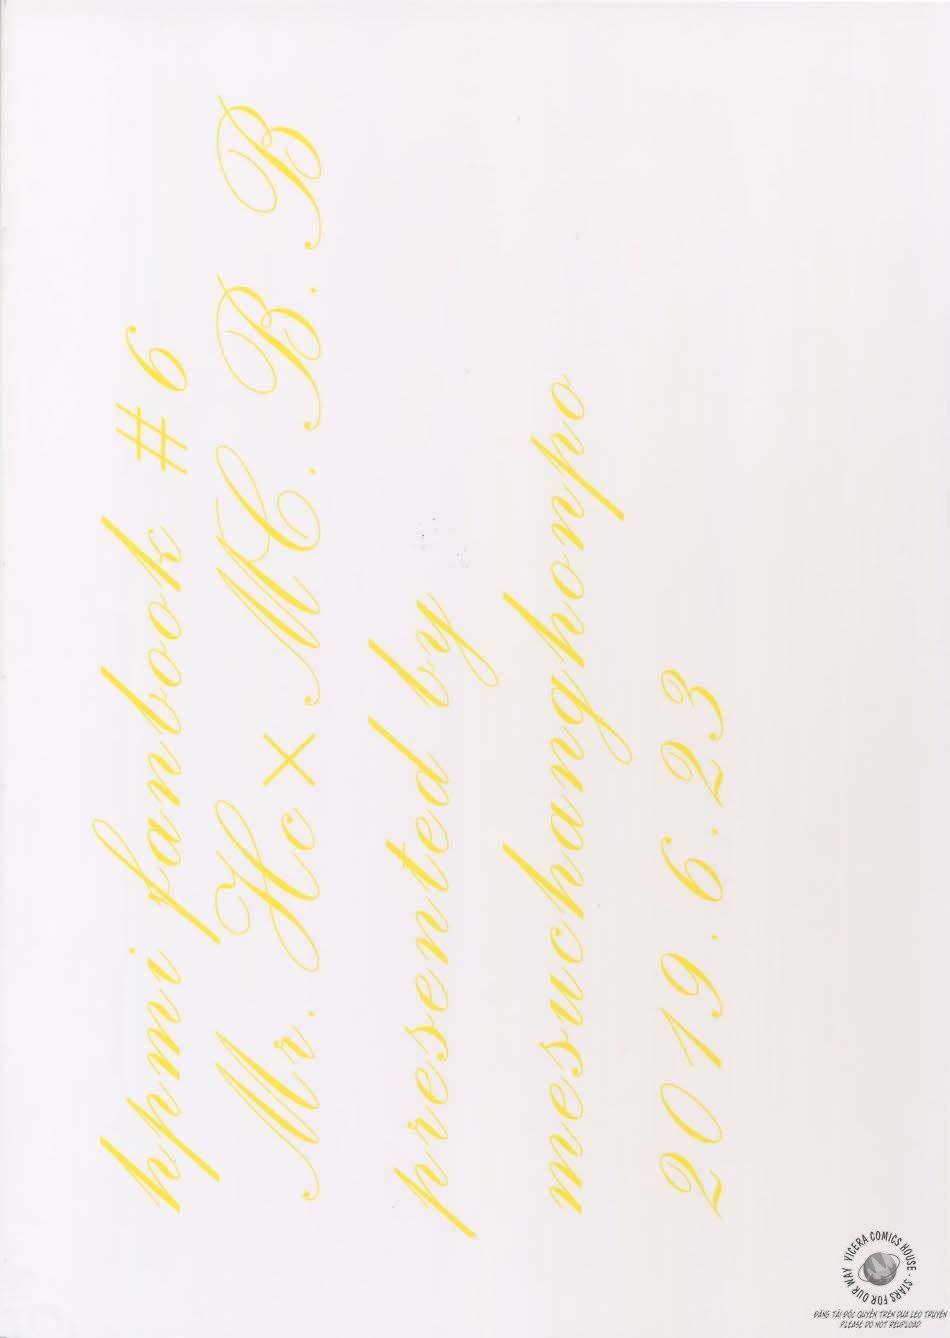 hpmi fanbook #6
Mr. Hc × MC. B. B
presented by
mesuchanghonpo
2019. 6. 23
VICERA COMICS HOUSE - STARS FOR OUR WAY
ĐĂNG TẢI ĐỘC QUYỀN TRÊN DƯA LEO TRUYỆN
PLEASE DO NOT REUPLOAD